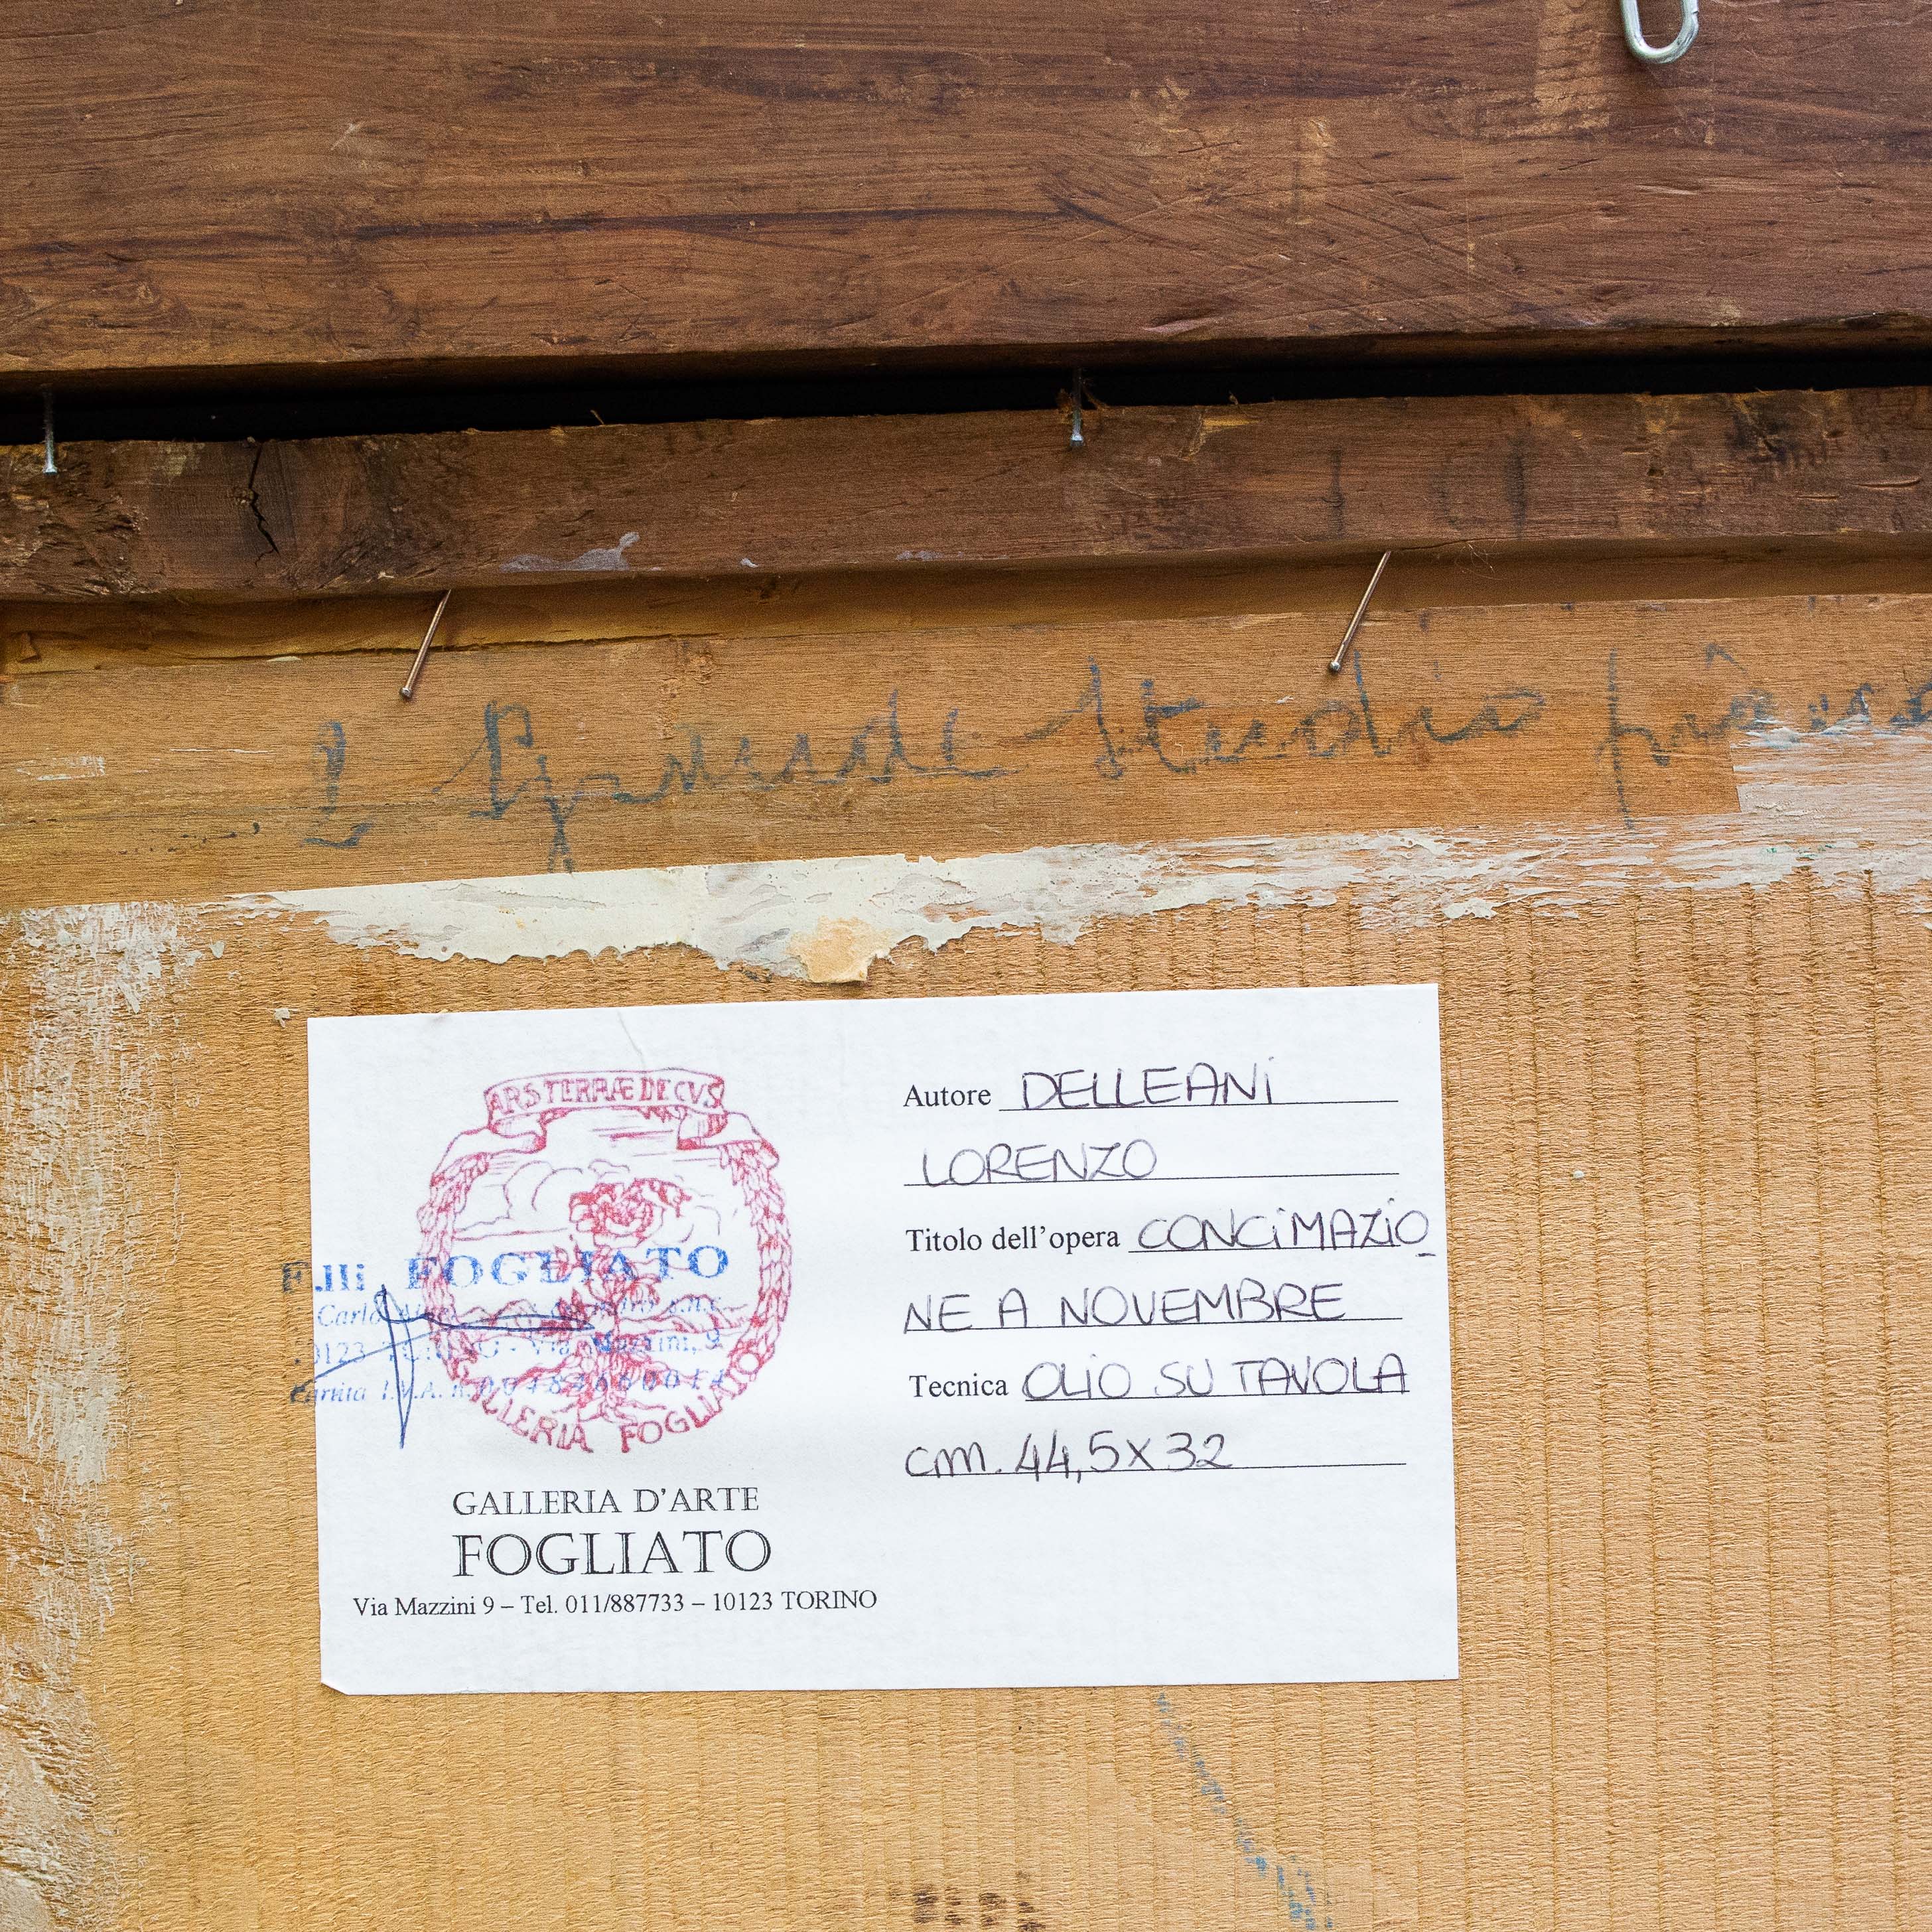 Studio
ARS TERRÆ DECVS
F.lli FOGLIATO
Carlo
10123 TORINO - Via Mazzini, 9
Partita I.V.A. n.
GALLERIA FOGLIATO
GALLERIA D'ARTE
FOGLIATO
Via Mazzini 9 – Tel. 011/887733 – 10123 TORINO
Autore DELLEANI
LORENZO
Titolo dell'opera CONCIMAZIO
NE A NOVEMBRE
Tecnica OLIO SU TAVOLA
cm. 44,5x32